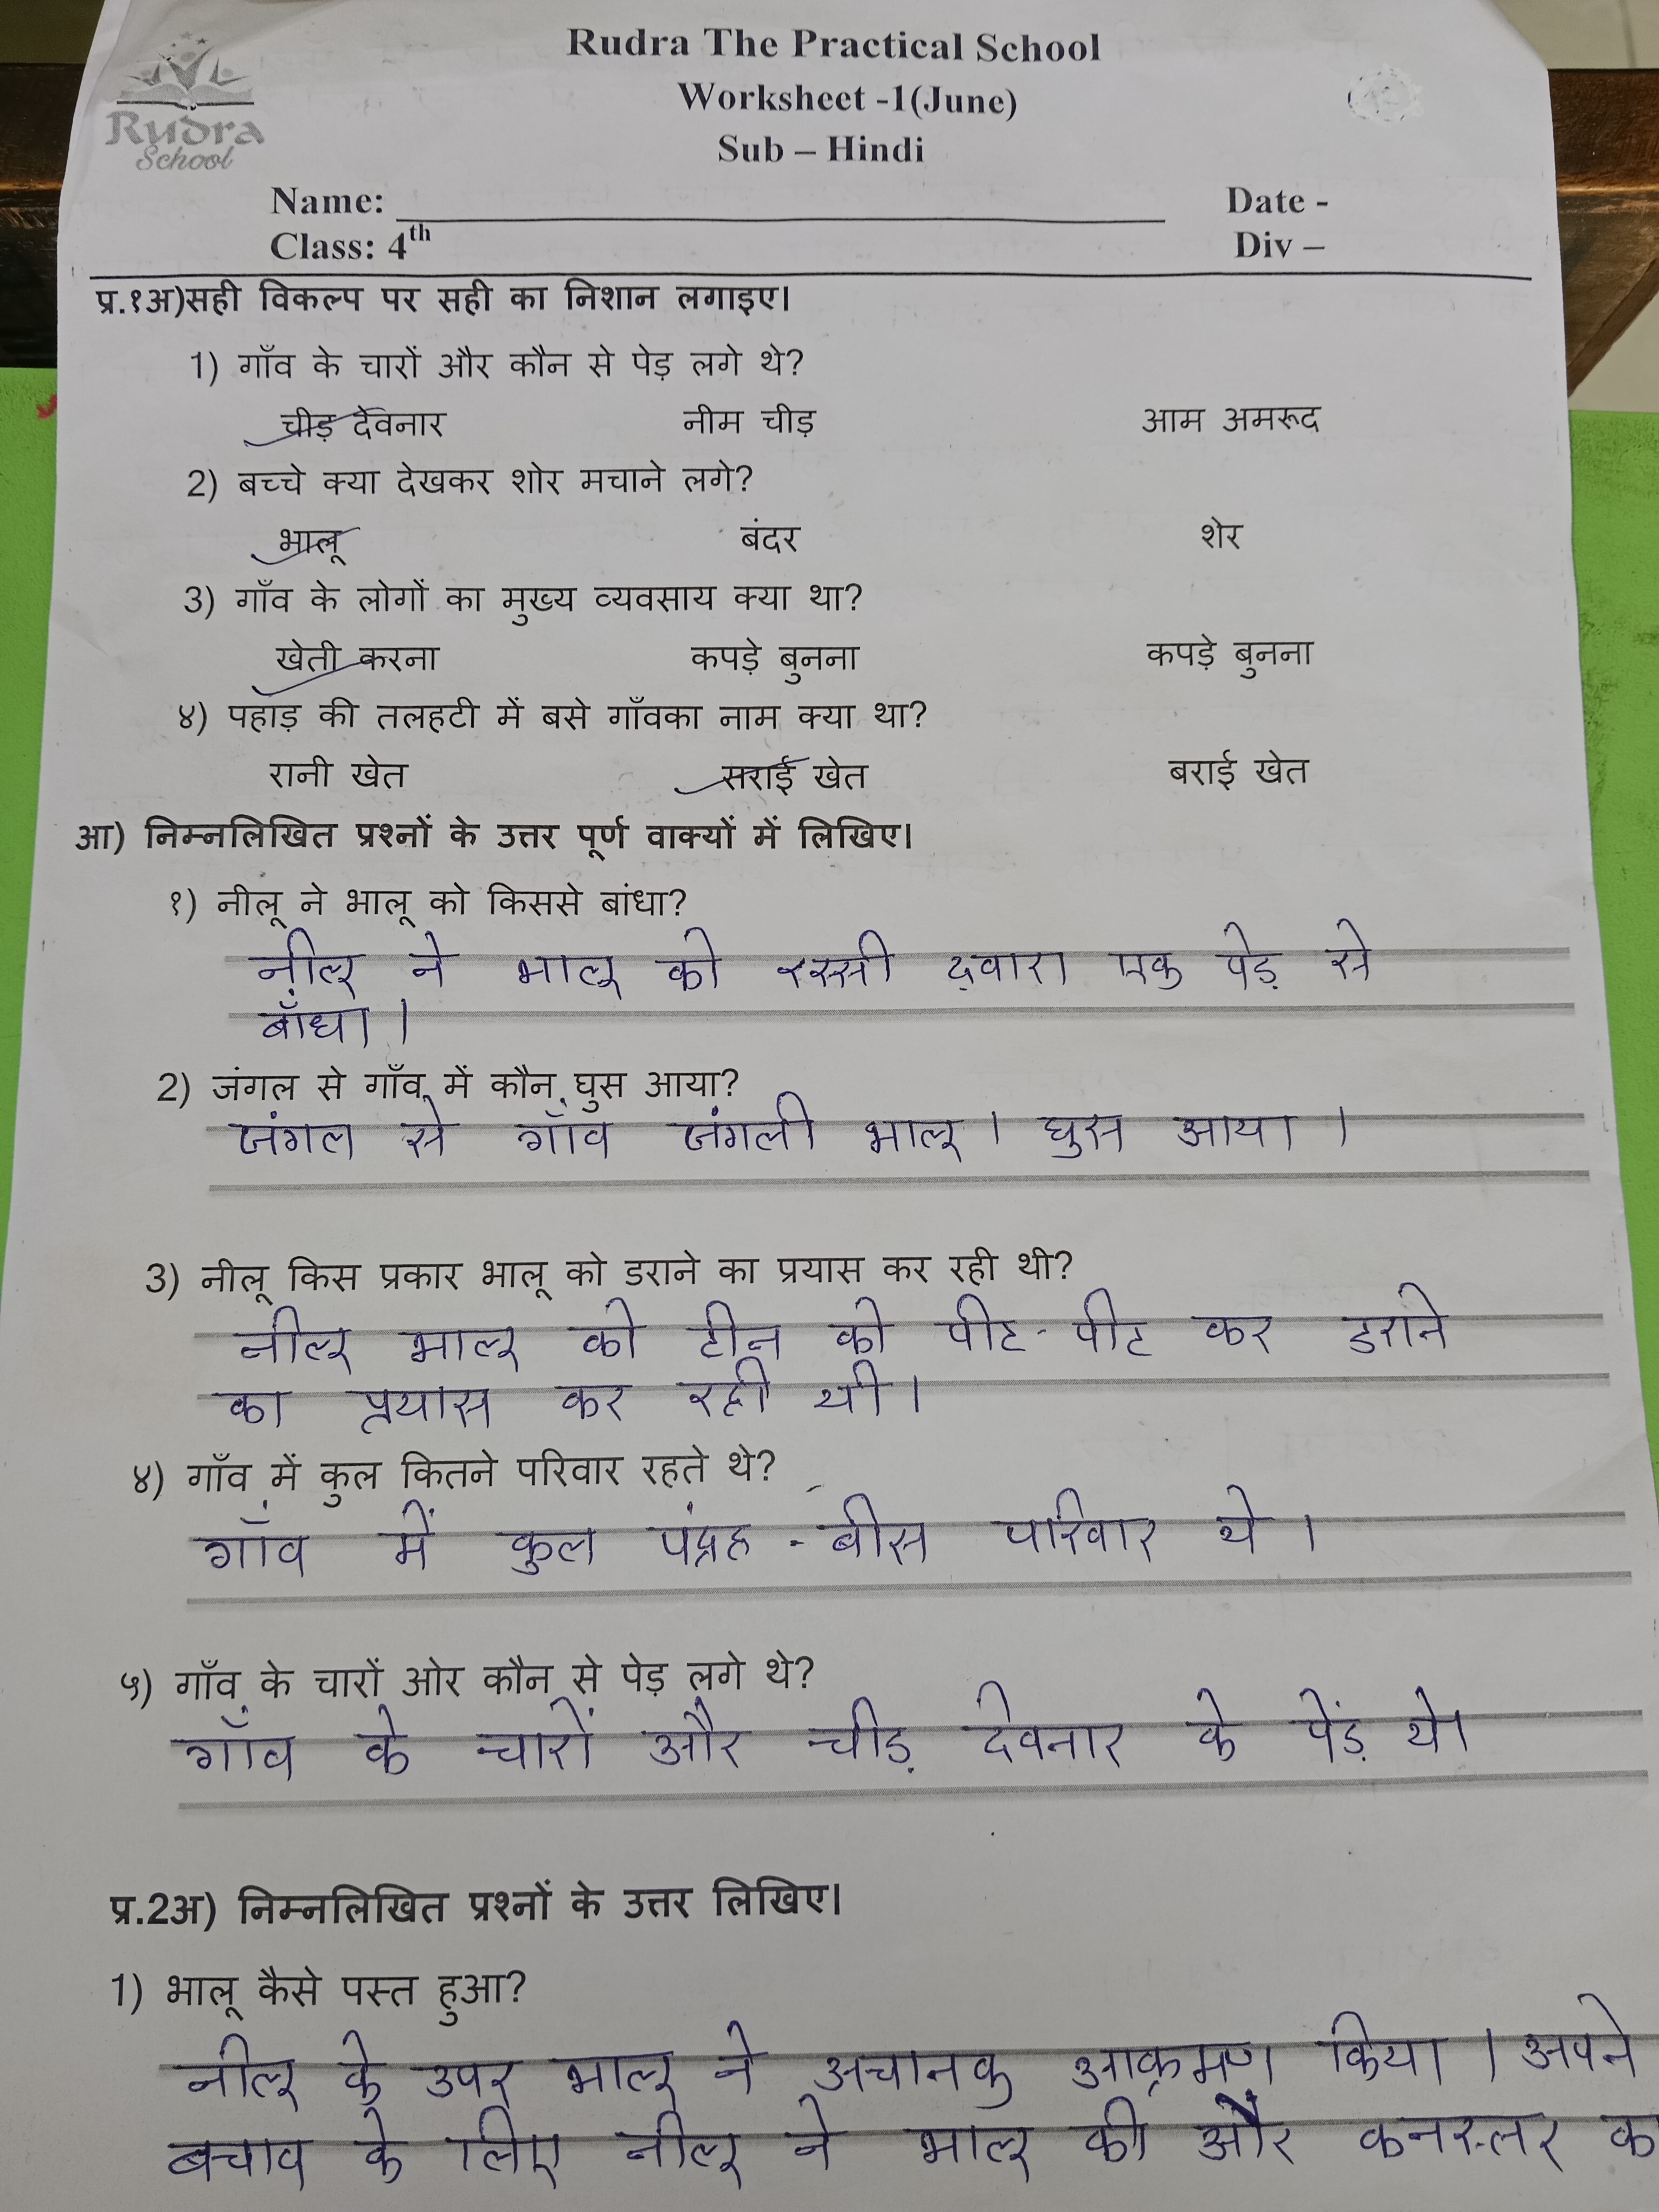 Rudra The Practical School
Worksheet -1(June)
Sub – Hindi
Rudra
School
Name: Date -
Class: 4th Div –
प्र.१अ)सही विकल्प पर सही का निशान लगाइए।
1) गाँव के चारों और कौन से पेड़ लगे थे?
चीड़ देवनार नीम चीड़ आम अमरूद
2) बच्चे क्या देखकर शोर मचाने लगे?
भालू बंदर शेर
3) गाँव के लोगों का मुख्य व्यवसाय क्या था?
खेती करना कपड़े बुनना कपड़े बुनना
४) पहाड़ की तलहटी में बसे गाँवका नाम क्या था?
रानी खेत सराई खेत बराई खेत
आ) निम्नलिखित प्रश्नों के उत्तर पूर्ण वाक्यों में लिखिए।
१) नीलू ने भालू को किससे बांधा?
नीलू ने भालू को रस्सी द्वारा एक पेड़ से
बाँधा।
2) जंगल से गाँव में कौन घुस आया?
जंगल से गाँव जंगली भालू। घुस आया।
3) नीलू किस प्रकार भालू को डराने का प्रयास कर रही थी?
नीलू भालू को टीन को पीट-पीट कर डराने
का प्रयास कर रही थी।
४) गाँव में कुल कितने परिवार रहते थे?
गाँव में कुल पंद्रह - बीस परिवार थे।
५) गाँव के चारों ओर कौन से पेड़ लगे थे?
गाँव के चारों और चीड़ देवनार के पेंड़ थे।
प्र.2अ) निम्नलिखित प्रश्नों के उत्तर लिखिए।
1) भालू कैसे पस्त हुआ?
नीलू के उपर भालू ने अचानक आक्रमण किया। अपने
बचाव के लिए नीलू ने भालू की और कनस्तर